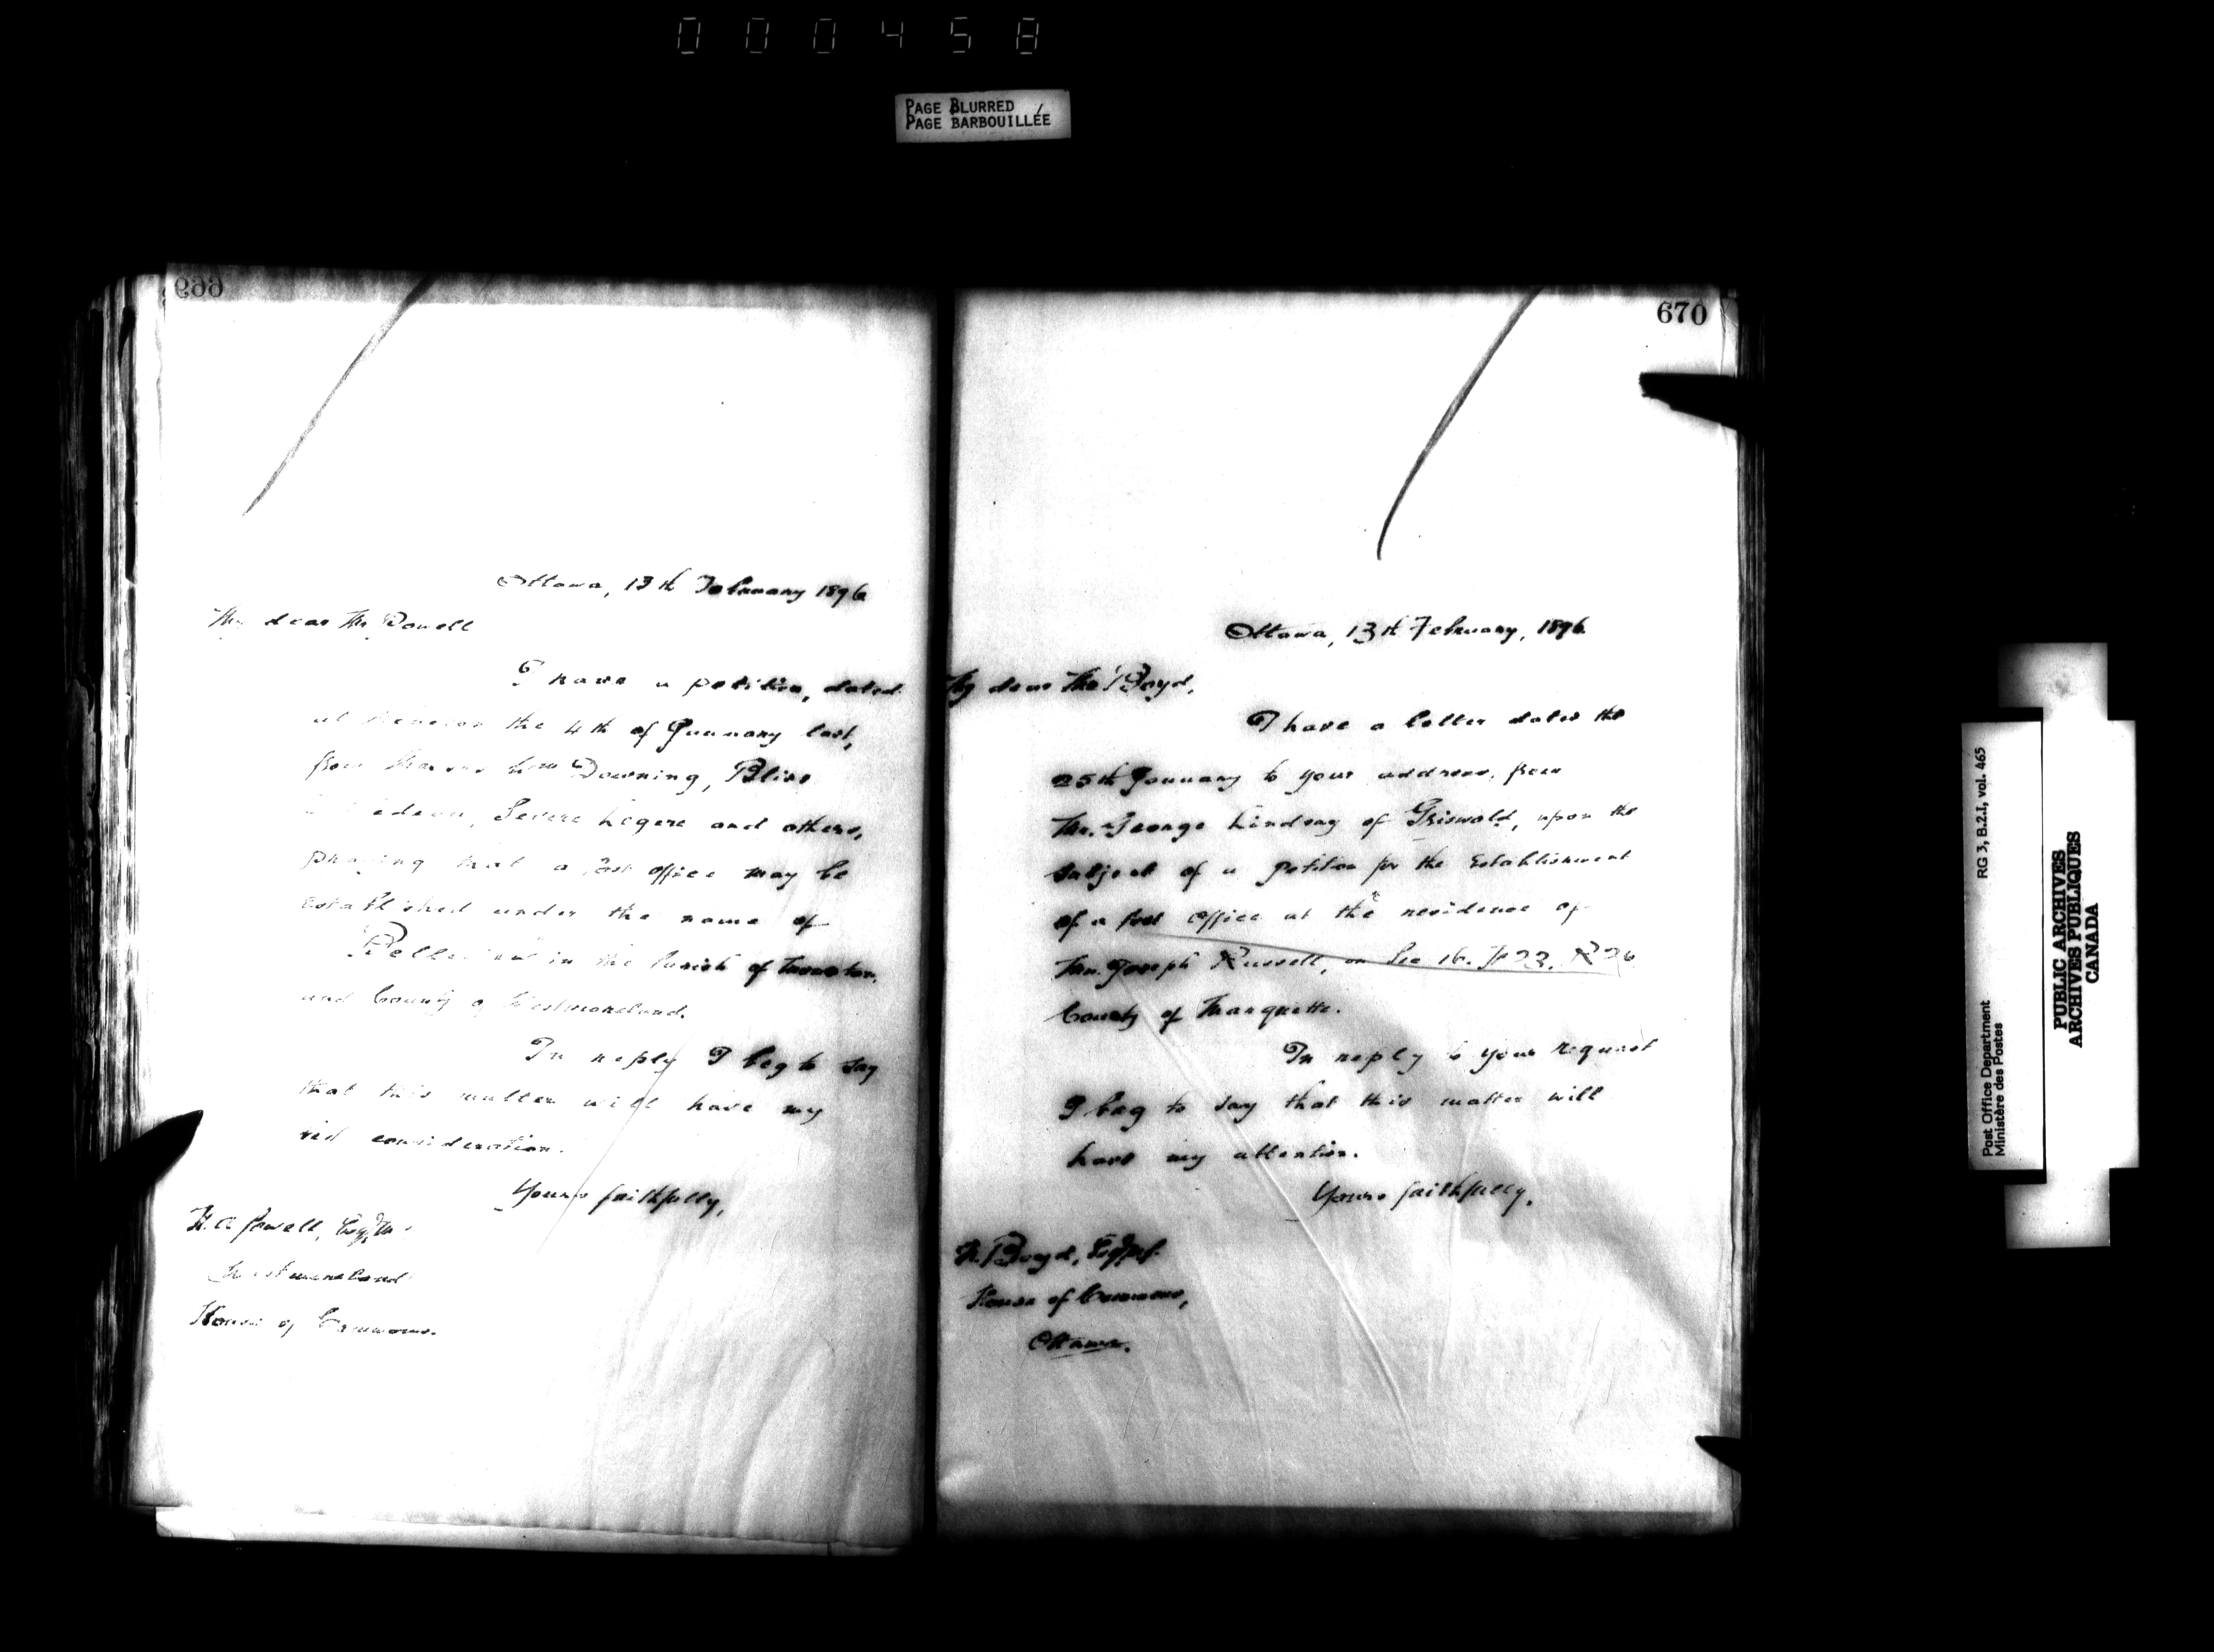 000458
PAGE BLURRED
PAGE BARBOUILLÉE
669
Ottawa, 13th February 1896
My dear Mr Powell
I have a petition, dated
at the 4th of January last,
from Wm Downing, Bliss
Severe Legere and others,
praying that a Post Office may be
established under the name of
in the Parish of Moncton,
and County of Westmoreland.
In reply I beg to say
that this matter will have my
consideration.
Yours faithfully,
H. A. Powell, Esq, M.
Westmoreland
House of Commons.
670
Ottawa, 13th February, 1896
My dear Mr Boyd,
I have a letter dated the
25th January to your address, from
Mr. George Lindsay of Griswold, upon the
subject of a petition for the establishment
of a Post Office at the residence of
Mr. Joseph Russell, on Sec 16. Tp 23. R 26
County of Marquette.
In reply to your request
I beg to say that this matter will
have my attention.
Yours faithfully,
N. Boyd, Esq, M.P.
House of Commons,
Ottawa.
Post Office Department
Ministère des Postes
RG 3, B.2.I, vol. 465
PUBLIC ARCHIVES
ARCHIVES PUBLIQUES
CANADA